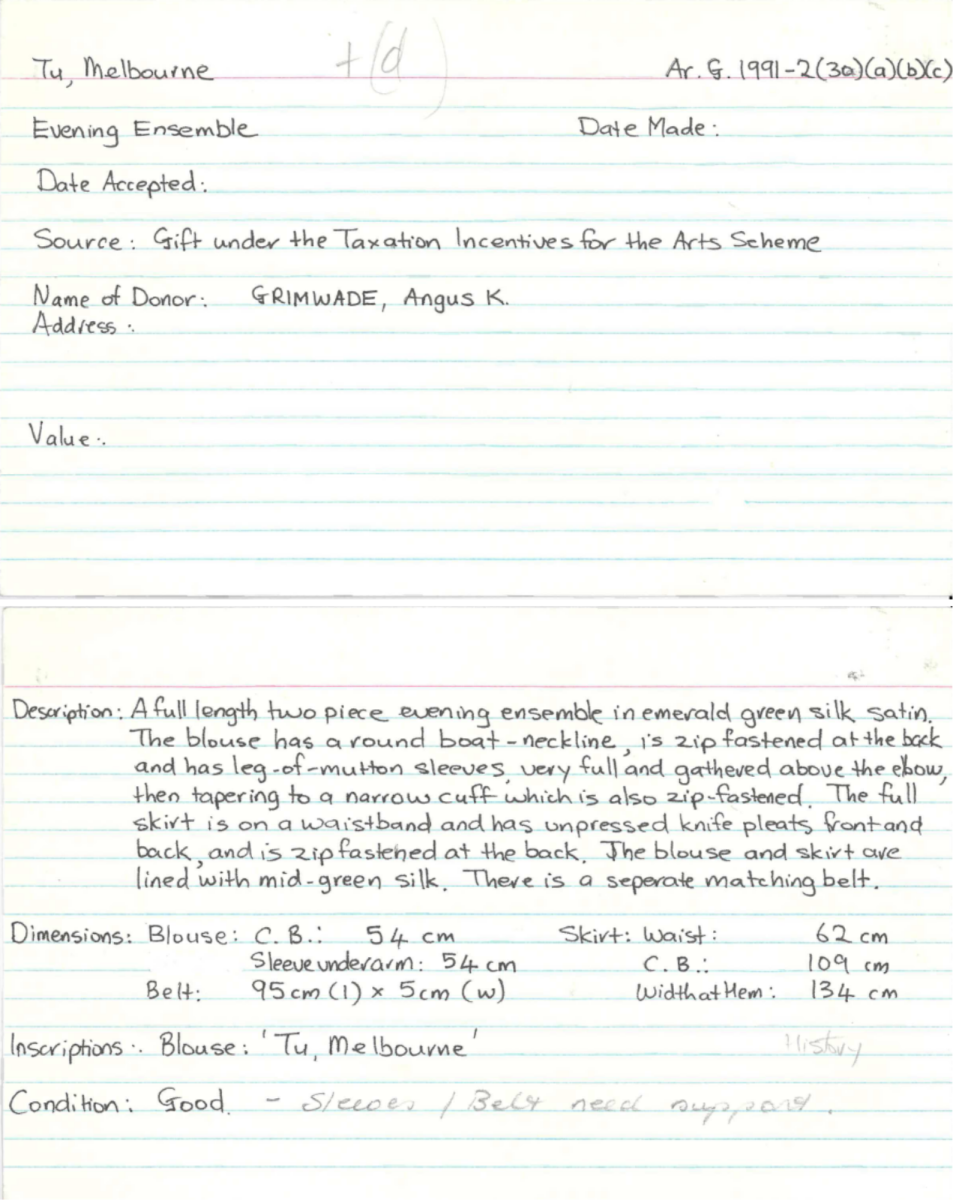 + (d)
Tu, Melbourne Ar. G. 1991-2(30)(a)(b)(c)
Evening Ensemble Date Made:
Date Accepted:
Source: Gift under the Taxation Incentives for the Arts Scheme
Name of Donor: GRIMWADE, Angus K.
Address:
Value:
Description: A full length two piece evening ensemble in emerald green silk satin.
The blouse has a round boat-neckline, is zip fastened at the back
and has leg-of-mutton sleeves, very full and gathered above the ebow,
then tapering to a narrow cuff which is also zip-fastened. The full
skirt is on a waistband and has unpressed knife pleats front and
back, and is zip fastened at the back. The blouse and skirt are
lined with mid-green silk. There is a seperate matching belt.
Dimensions: Blouse: C.B.: 54 cm Skirt: Waist: 62 cm
Sleeve underarm: 54 cm C.B.: 109 cm
Belt: 95cm (l) x 5cm (w) Width at Hem: 134 cm
Inscriptions: Blouse: 'Tu, Melbourne' History
Condition: Good. - Sleeves / Belt need support.